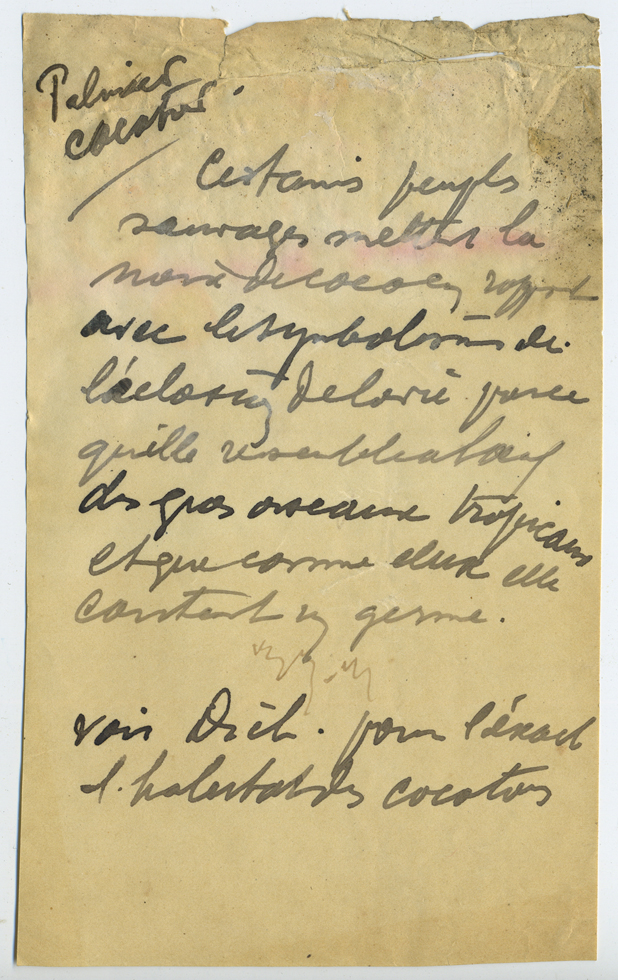 Palmier
cocotier
Certains peuples
sauvages mettent la
noix de coco en rapport
avec le symbolisme de
l'éclosion de la vie parce
qu'elle ressemble
des gros oiseaux tropicaux
et que comme eux elle
contient un germe.
voir Dict. pour l'exact
l'habitat des cocotiers